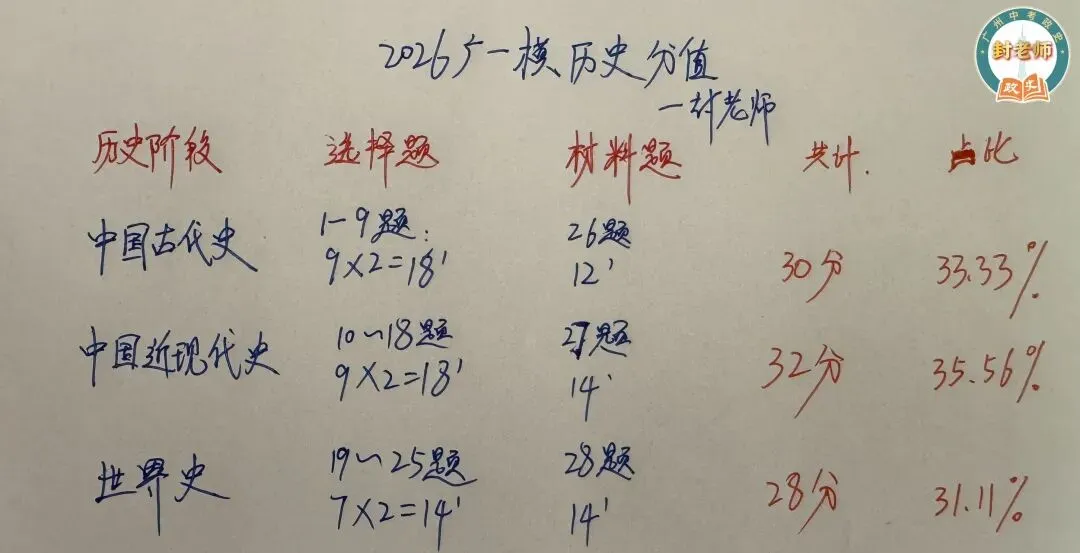 2026广一模历史分值
—封老师
广州中考政史
封老师
政史
历史阶段 选择题 材料题 共计. 占比
中国古代史 1-9题: 26题 30分 33.33%
9×2=18' 12'
中国近现代史 10~18题 27题 32分 35.56%
9×2=18' 14'
世界史 19~25题 28题 28分 31.11%
7×2=14' 14'